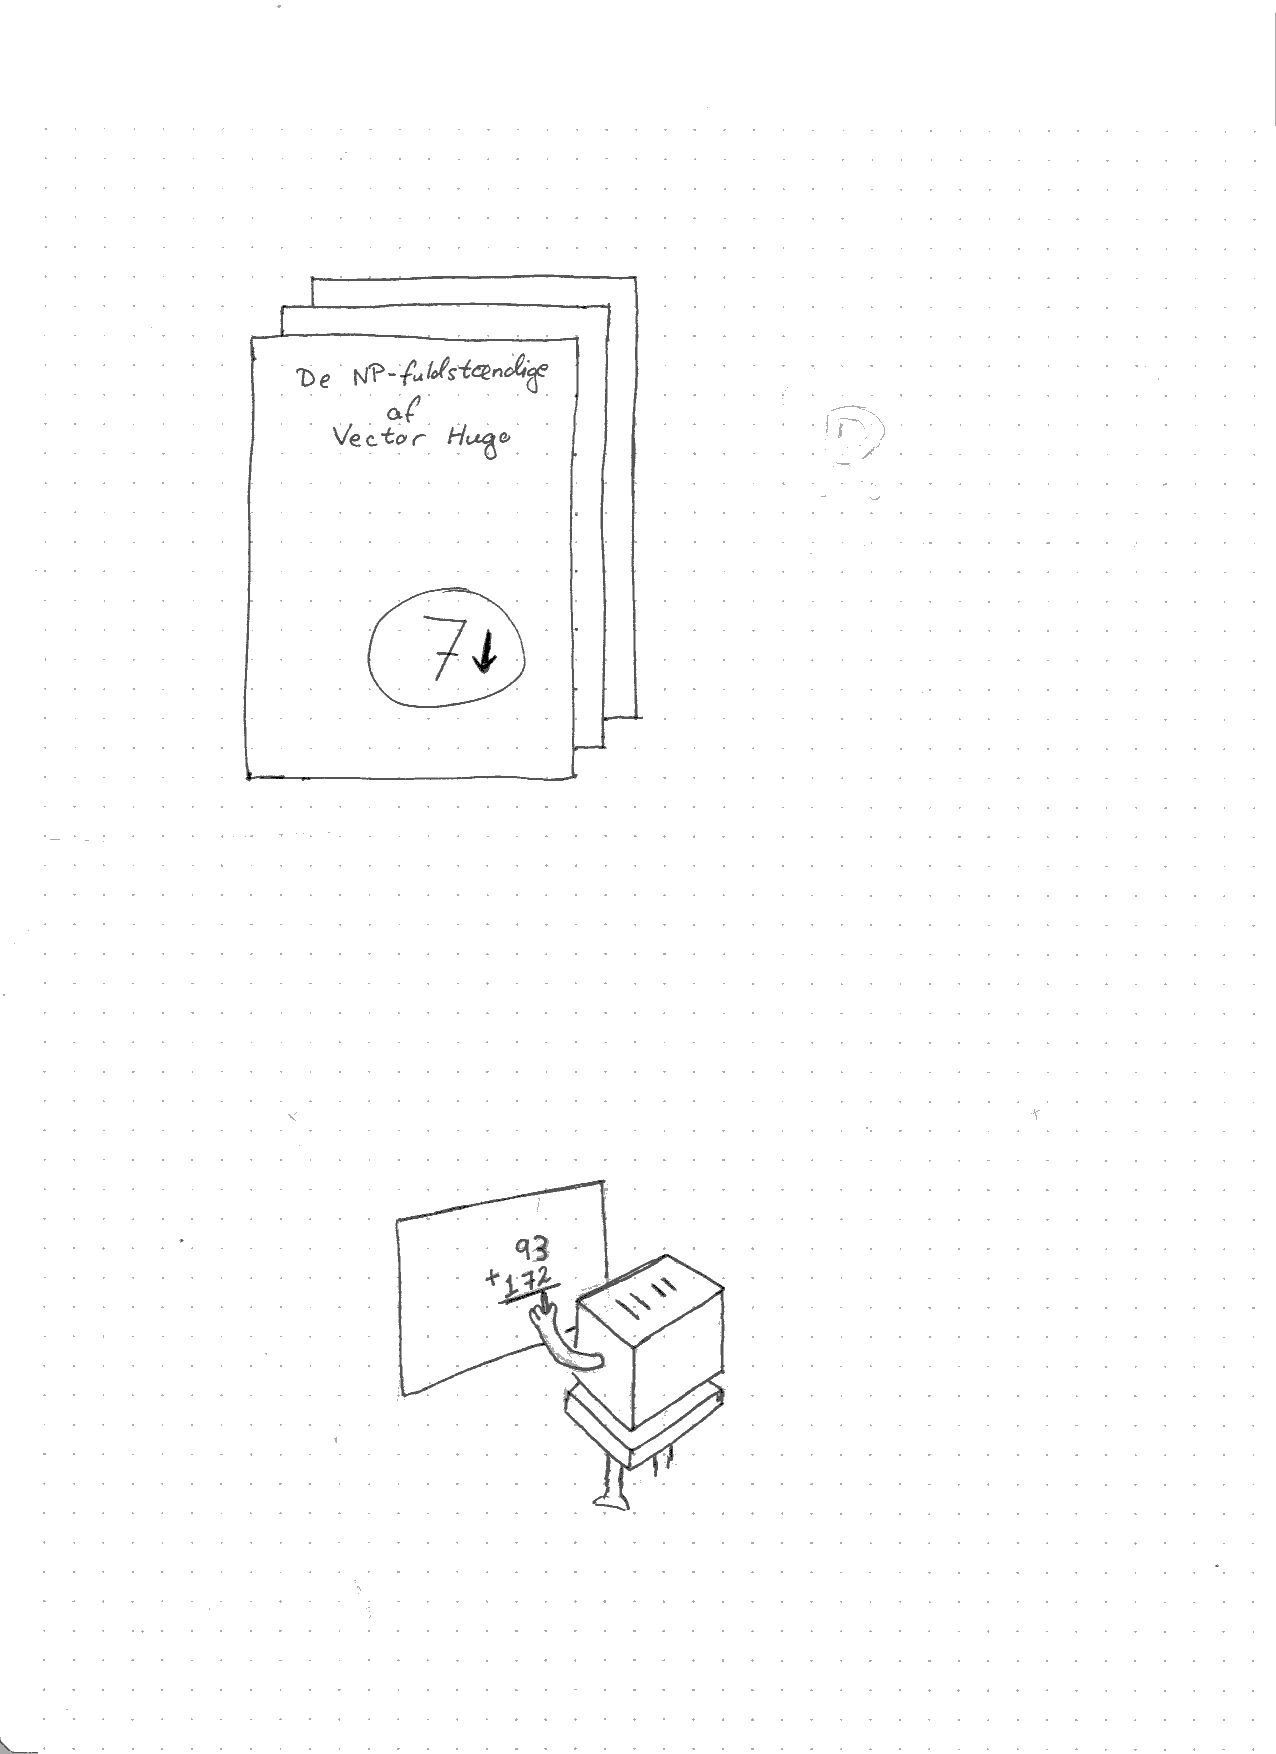 De NP-fuldstændige
af
Vector Hugo
7↓
93
+172